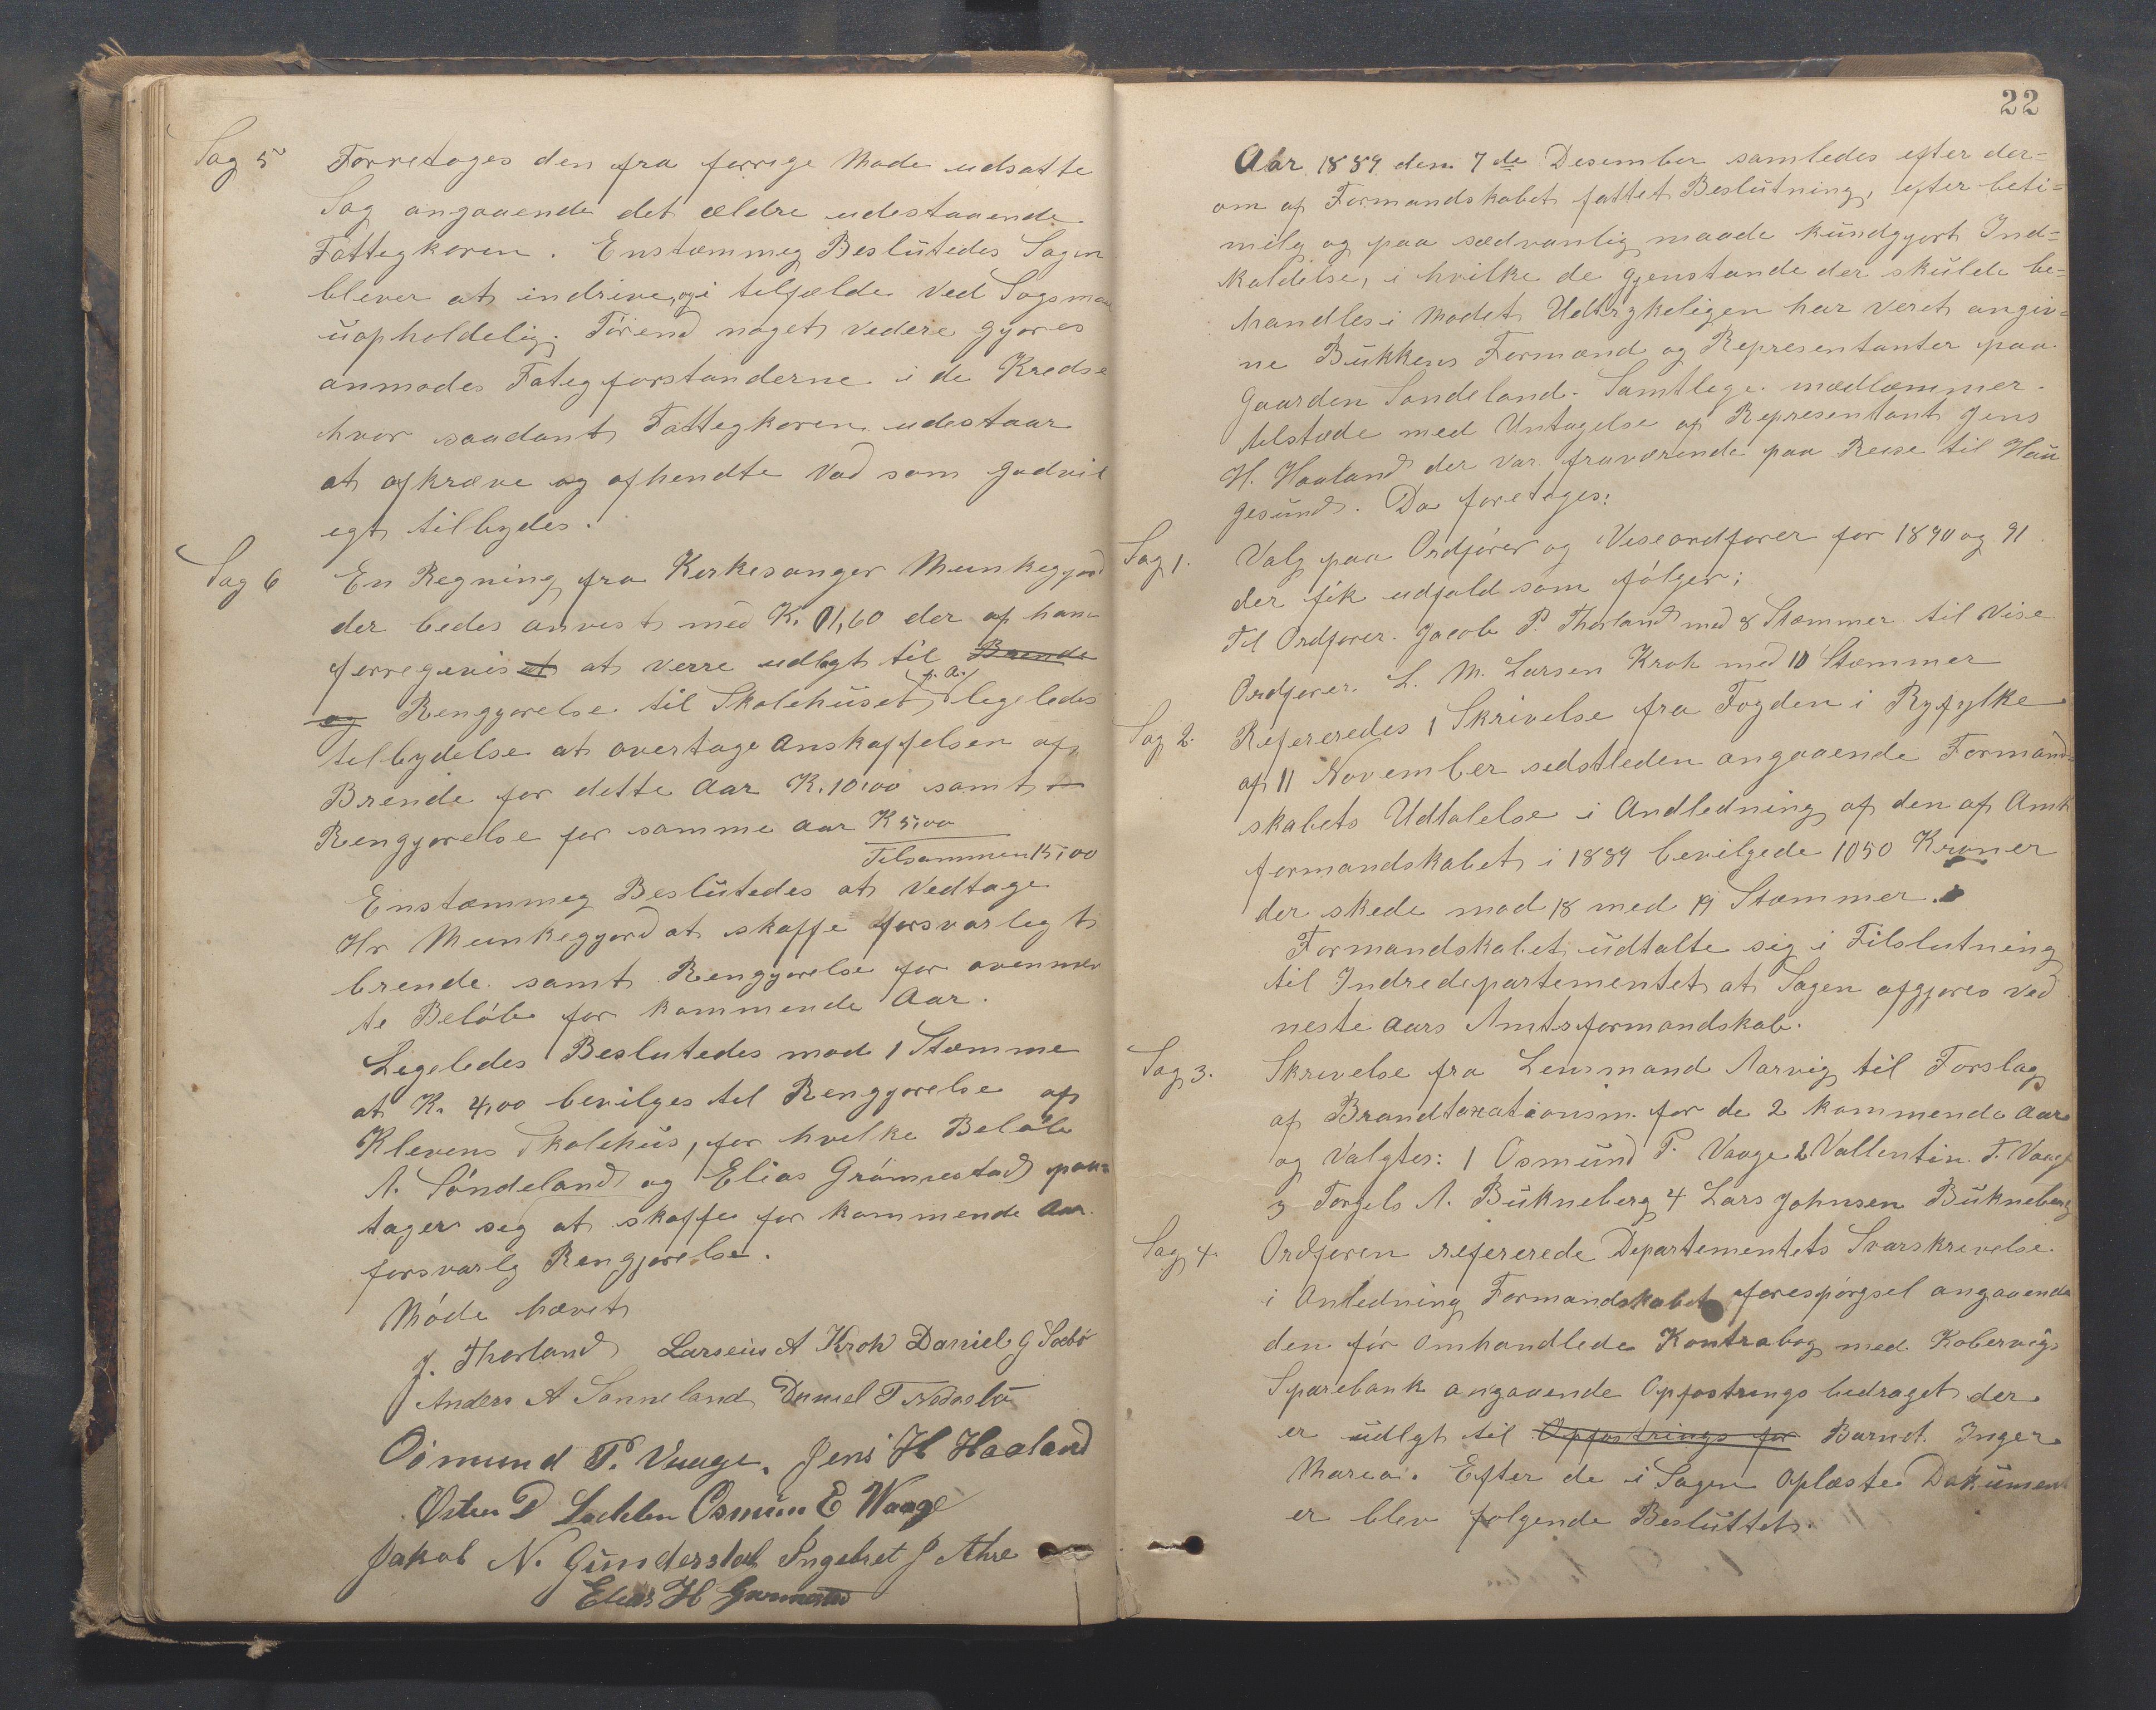 Sag 5 Forretoges den fra forrige Møde udsatte
Sag angaaende det ældre udestaaende
Fattegkoren. Enstæmmeg Beslutedes Sagen
blever at indrive, og i telfælde ved Sogsmaa
uopholdelig. Førend noget vedere gjøres
anmodes Fategforstanderne i de Kredse
hvor saadant Fattegkoren udestaar
at afkræve og afhendte vad som godvil
egt tilbydes.
Sag 6 En Regning fra Kerkesanger Munkegjord
der bedes anvest med K. 01,60 der af ham
forregevis at at verre udlegt til Brende
og Rengjørelse til Skolehuset f. A. legeledes
telbydelse at overtage Anskaffelsen af
Brende for dette Aar K. 10,00 samt
Rengjørelse for samme aar K 5,00
Telsammen 15,00
Enstæmmeg Beslutedes at vedtage
Hr Munkegjord at skaffe forsvarlegt
brende samt Rengjørelse for ovennev
te Beløb for kommende Aar.
Legeledes Beslutedes mod 1 Stæmme
at K. 4,00 bevilges tel Rengjørelse af
Klevens Skolehus, for hvelke Beløb
A. Søndeland og Elias Grønnestad paa-
tager seg at skaffe for kommende Aar
forsvarlg Rengjørelse.
Møde hævet
J. Thorland Larseus A Krok Daniel G Sæbø
Anders A Sanneland Daniel T
Osmund P. Vaage. Jens H Haaland
Østen D Lodden Osmun E Waage
Jakob N. Gunderstad Ingebret J Ahre
Elias H Grønnestad
22
Aar 1889 den 7de Desember samledes efter der-
om af Formandskabet fattet Beslutning, efter beti-
melig og paa sædvanlig maade kundgjort Ind-
kaldelse, i hvilke de gjenstande der skulde be-
handles i Mødet Udtrykeligen har veret angiv-
ne Bukkens Formænd og Representanter paa
Gaarden Sandeland. Samtlege mædlæmmer
telstæde med Untagelse af Representant Jens
H. Haaland der var fraværende paa Reise til Hau
gesund. Da foretoges:
Sag 1. Valg paa Ordfører og Viseordfører for 1890 og 91
der fik udfald som følger;
Tel Ordfører. Jacob P. Thorland med 8 Stæmmer til Vise
Ordfører L. M. Larsen Krok med 10 Stæmmer
Sag 2. Refereredes 1 Skrivelse fra Fogden i Ryfylke
af 11 November sedstleden angaaende Formand-
skabets Udtalelse i Andledning af den af Amts
formandskabet i 1889 bevilgede 1050 Kroner
der skede mod 18 med 19 Stæmmer.
Formandskabet udtalte sig i Tilslutning
til Indredepartementet at Sagen afgjøres ved
neste Aars Amtsformandskab.
Sag 3. Skrevelse fra Lensmand Narvig til Forslag
af Brandtaxationsm. for de 2 kommende Aar
og Valgtes: 1 Osmund P. Vaage 2 Vallentin T. Vaage
3 Torgels A. Bukneberg 4 Lars Johnsen Bukneberg
Sag 4. Ordføren refererede Departementets Svarskrevelse
i Anledning Formandskabet forespørgsel angaaende
den før omhandlede Kontrabog med Kobervigs
Sparebank angaaende Opfostringsbedraget der
er udlgt til Opfostrings for Barnet Inger
Maria. Efter de i Sagen Oplæste Dokumen
er blev følgende Besluttet.